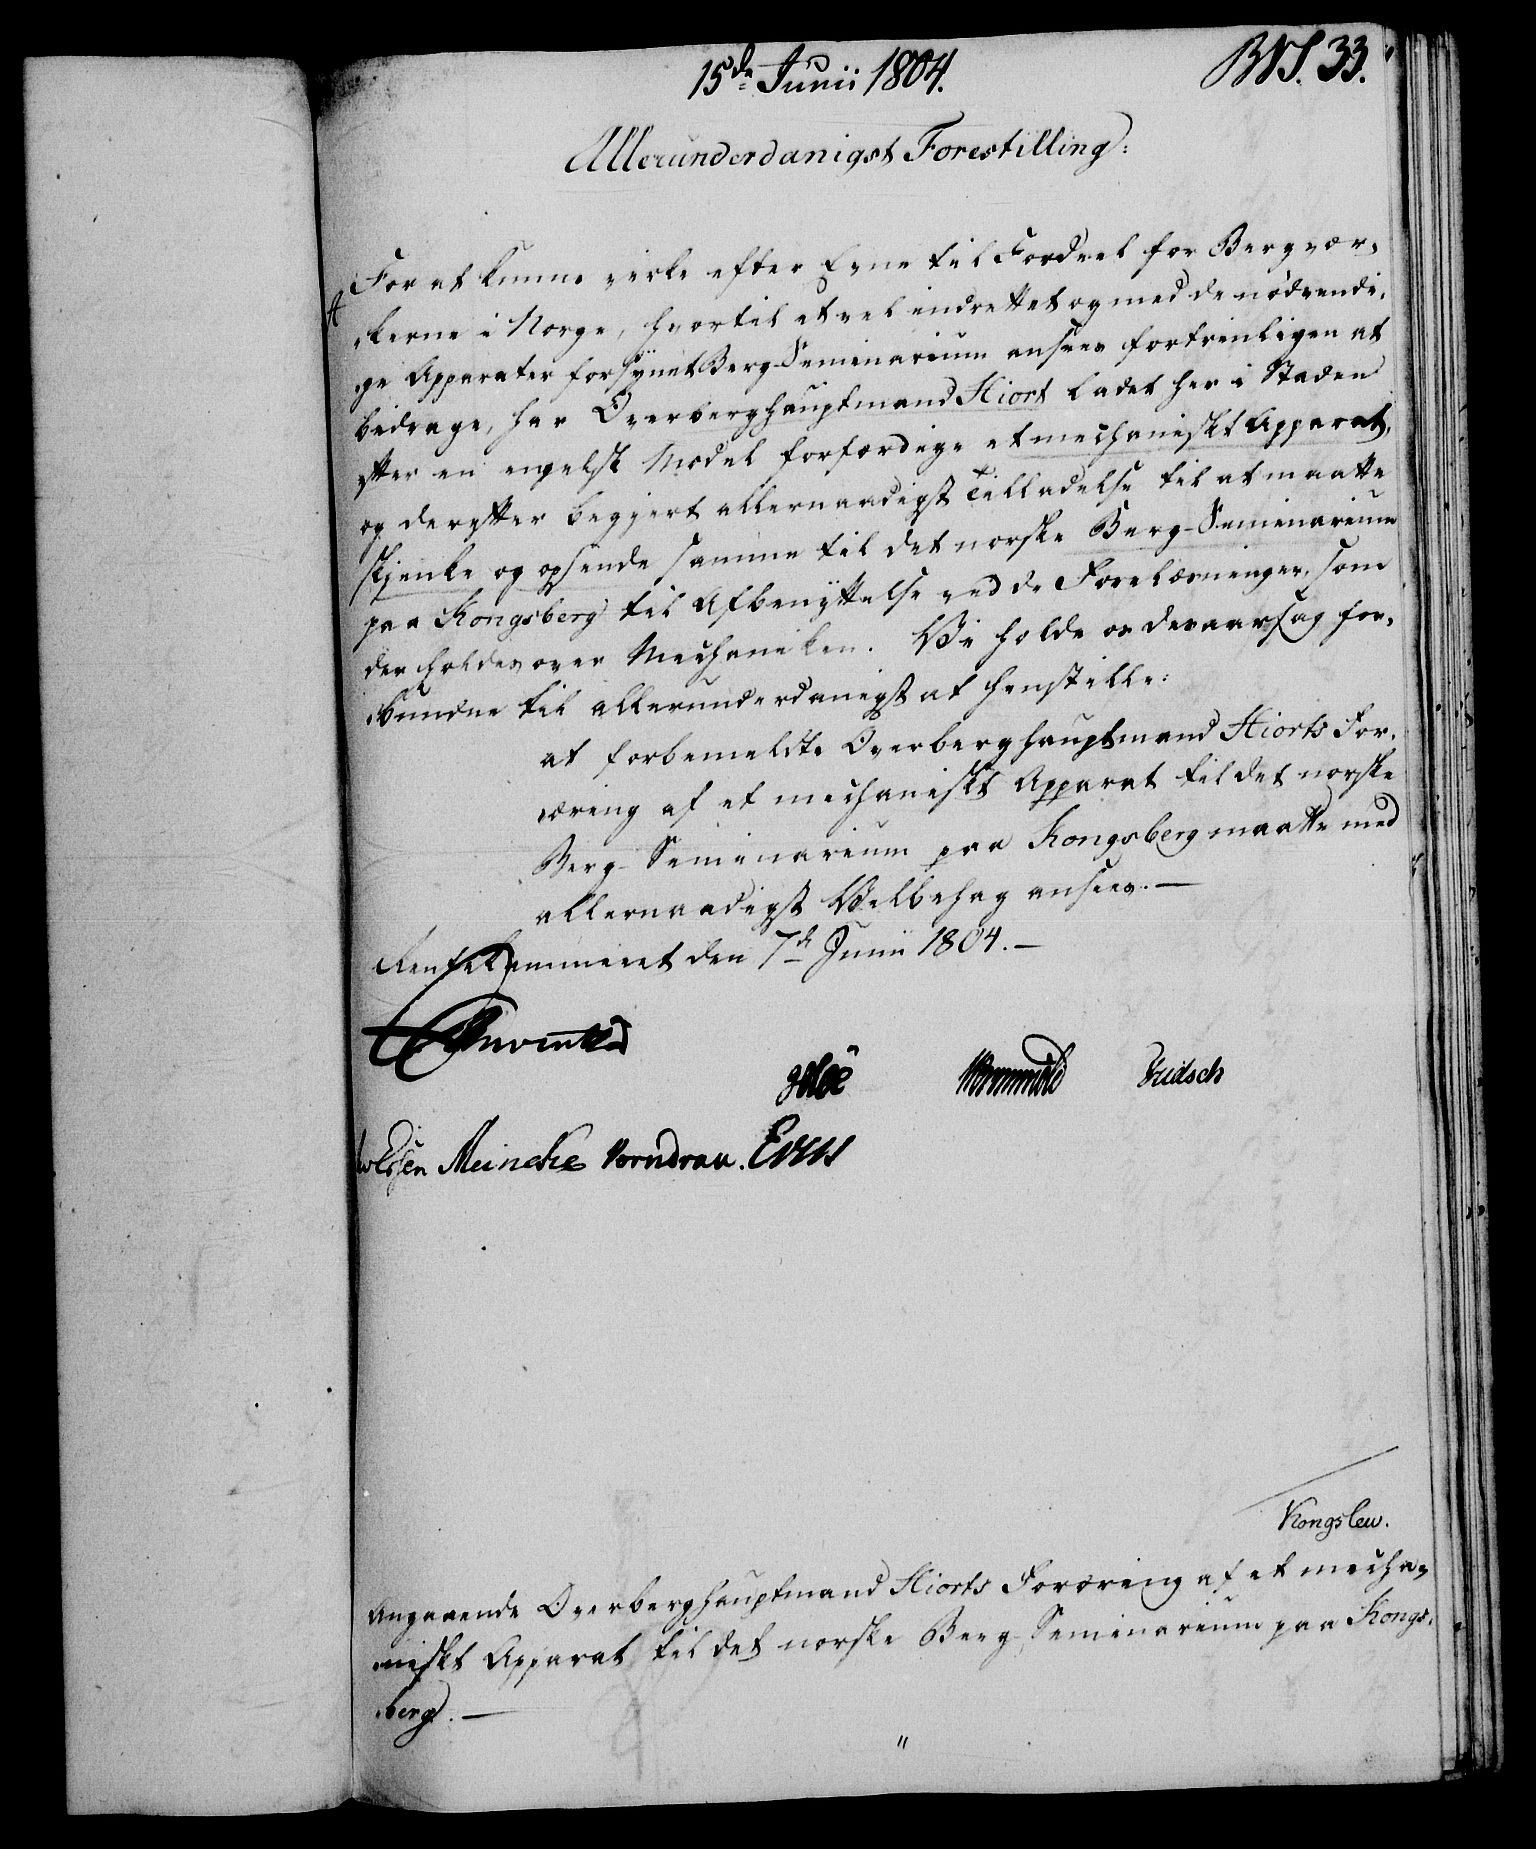 15de Junii 1804.
BNS. 33.
Allerunderdanigst Forestilling:
For at kunne virke efter Evne til Fordeel for Bergvær-
A
kerne i Norge, hvortil et vel indrettet og med de nødvendi-
ge Apparater forsÿnet Berg-Seminarium ansees fortrinligen at
bidrage, har Overberghauptmand Hiort ladet her i Staden
efter en engelsk Model forfærdige et mechaniskt Apparat,
og derefter begjert allernaadigst Tilladelse til at maatte
skjenke og opsende samme til det norske Berg-Seminarium
paa Kongsberg til Afbenÿttelse ved de Forelæsninger, som
der holdes over Mechaniken. Vi holde os desaarsag for-
bundne til allerunderdanigst at henstille:
at forbemeldte Overberghauptmand Hiorts For-
æring af et mechaniskt Apparat til det norske
Berg-Seminarium paa Kongsberg maatte med
allernaadigst Velbehag ansees.—
Rentekammeret den 7de Junii 1804.—
Meincke Vorndran.
Kongslew.
Angaaende Overberghauptmand Hiorts Foræring af et mecha-
niskt Apparat til det norske Berg-Seminarium paa Kongs-
berg.—
"